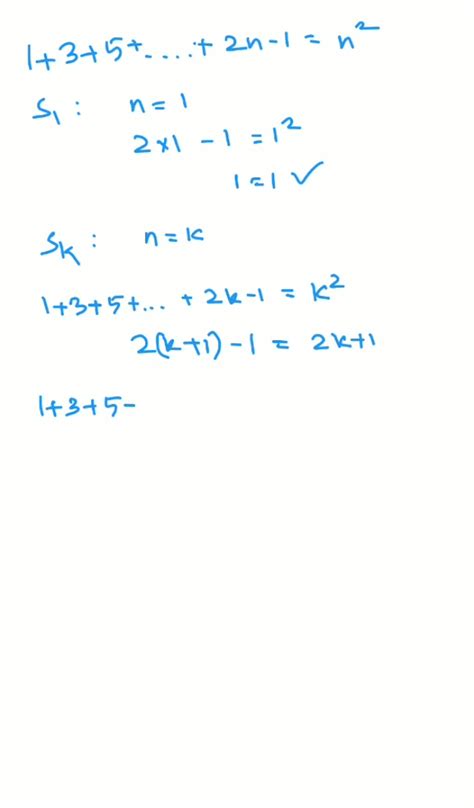 1+3+5+....+ 2n-1 = n²
S₁ : n = 1
2×1 - 1 = 1²
1 = 1 ✓
Sₖ : n = k
1+3+5+... + 2k-1 = k²
2(k+1)-1 = 2k+1
1+3+5-